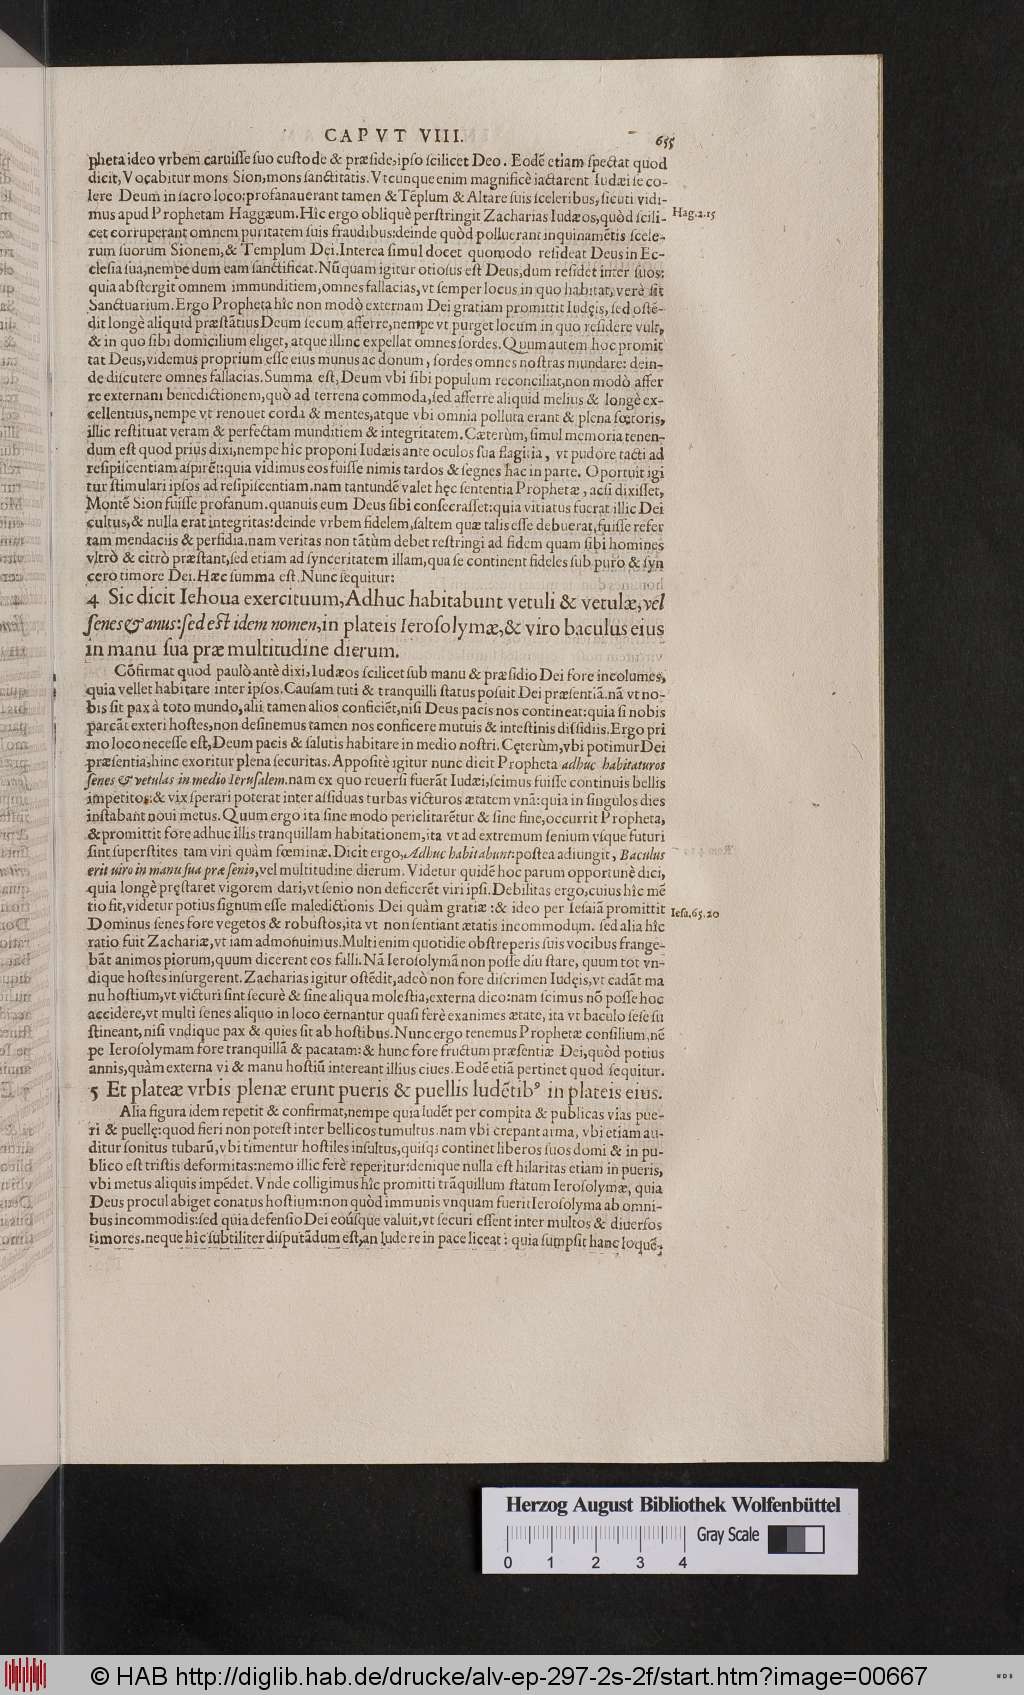 CAPVT VIII. 655
pheta ideo vrbem caruisse suo custode & præside, ipso scilicet Deo. Eodē etiam spectat quod
dicit, Vocabitur mons Sion, mons sanctitatis. Vtcunque enim magnificè iactarent Iudæi se co-
lere Deum in sacro loco: profanauerant tamen & Tēplum & Altare suis sceleribus, sicuti vidi-
mus apud Prophetam Haggæum. Hîc ergo obliquè perstringit Zacharias Iudæos, quòd scili-
Hag.2.15
cet corruperant omnem puritatem suis fraudibus: deinde quòd polluerant inquinamētis scele-
rum suorum Sionem, & Templum Dei. Interea simul docet quomodo resideat Deus in Ec-
clesia sua, nempe dum eam sanctificat. Nūquam igitur otiosus est Deus, dum residēt inter suos:
quia abstergit omnem immunditiem, omnes fallacias, vt semper locus in quo habitat, verè sit
Sanctuarium. Ergo Propheta hîc non modò externam Dei gratiam promittit Iudęis, sed ostē-
dit longè aliquid præstātius Deum secum afferre, nempe vt purget locum in quo residere vult,
& in quo sibi domicilium eliget, atque illinc expellat omnes sordes. Quum autem hoc promit
tat Deus, videmus proprium esse eius munus ac donum, sordes omnes nostras mundare: dein-
de discutere omnes fallacias. Summa est, Deum vbi sibi populum reconciliat, non modò affer
re externam benedictionem, quò ad terrena commoda, sed afferre aliquid melius & longè ex-
cellentius, nempe vt renouet corda & mentes, atque vbi omnia polluta erant & plena fœtoris,
illic restituat veram & perfectam munditiem & integritatem. Cæterùm, simul memoria tenen-
dum est quod prius dixi, nempe hîc proponi Iudæis ante oculos sua flagitia, vt pudore tacti ad
resipiscentiam aspirēt: quia vidimus eos fuisse nimis tardos & segnes hac in parte. Oportuit igi
tur stimulari ipsos ad resipiscentiam. nam tantundē valet hęc sententia Prophetæ, acsi dixisset,
Montē Sion fuisse profanum. quanuis eum Deus sibi consecrasset: quia vitiatus fuerat illic Dei
cultus, & nulla erat integritas: deinde vrbem fidelem, saltem quæ talis esse debuerat, fuisse refer
tam mendaciis & perfidia. nam veritas non tātùm debet restringi ad fidem quam sibi homines
vltrò & citrò præstant, sed etiam ad synceritatem illam, qua se continent fideles sub puro & syn
cero timore Dei. Hæc summa est. Nunc sequitur:
4 Sic dicit Iehoua exercituum, Adhuc habitabunt vetuli & vetulæ, vel
senes & anus: sed est idem nomen, in plateis Ierosolymæ, & viro baculus eius
in manu sua præ multitudine dierum.
Cōfirmat quod paulò antè dixi, Iudæos scilicet sub manu & præsidio Dei fore incolumes,
quia vellet habitare inter ipsos. Causam tuti & tranquilli status posuit Dei præsentiā. nā vt no-
bis sit pax à toto mundo, alii tamen alios conficiēt, nisi Deus pacis nos contineat: quia si nobis
parcāt exteri hostes, non desinemus tamen nos conficere mutuis & intestinis dissidiis. Ergo pri
mo loco necesse est, Deum pacis & salutis habitare in medio nostri. Cęterùm, vbi potimur Dei
præsentia, hinc exoritur plena securitas. Appositè igitur nunc dicit Propheta adhuc habitaturos
senes & vetulas in medio Ierusalem. nam ex quo reuersi fuerāt Iudæi, scimus fuisse continuis bellis
impetitos: & vix sperari poterat inter assiduas turbas victuros ætatem vnā: quia in singulos dies
instabant noui metus. Quum ergo ita sine modo periclitarētur & sine fine, occurrit Propheta,
& promittit fore adhuc illis tranquillam habitationem, ita vt ad extremum senium vsque futuri
sint superstites tam viri quàm fœminæ. Dicit ergo, Adhuc habitabunt: postea adiungit, Baculus
erit uiro in manu sua præ senio, vel multitudine dierum. Videtur quidē hoc parum opportunè dici,
quia longè pręstaret vigorem dari, vt senio non deficerēt viri ipsi. Debilitas ergo, cuius hîc mē
tio fit, videtur potius signum esse maledictionis Dei quàm gratiæ: & ideo per Iesaiā promittit
Iesa.65.20
Dominus senes fore vegetos & robustos, ita vt non sentiant ætatis incommodum. sed alia hîc
ratio fuit Zachariæ, vt iam admonuimus. Multi enim quotidie obstreperis suis vocibus frange-
bāt animos piorum, quum dicerent eos falli. Nā Ierosolymā non posse diu stare, quum tot vn-
dique hostes insurgerent. Zacharias igitur ostēdit, adeò non fore discrimen Iudęis, vt cadāt ma
nu hostium, vt victuri sint securè & sine aliqua molestia, externa dico: nam scimus nō posse hoc
accidere, vt multi senes aliquo in loco cernantur quasi ferè exanimes ætate, ita vt baculo sese su
stineant, nisi vndique pax & quies sit ab hostibus. Nunc ergo tenemus Prophetæ consilium, nē
pe Ierosolymam fore tranquillā & pacatam: & hunc fore fructum præsentiæ Dei, quòd potius
annis, quàm externa vi & manu hostiū intereant illius ciues. Eodē etiā pertinet quod sequitur.
5 Et plateæ vrbis plenæ erunt pueris & puellis ludētibꝰ in plateis eius.
Alia figura idem repetit & confirmat, nempe quia ludēt per compita & publicas vias pue-
ri & puellę: quod fieri non potest inter bellicos tumultus. nam vbi crepant arma, vbi etiam au-
ditur sonitus tubarū, vbi timentur hostiles insultus, quisqꝫ continet liberos suos domi & in pu-
blico est tristis deformitas: nemo illic ferè reperitur: denique nulla est hilaritas etiam in pueris,
vbi metus aliquis impēdet. Vnde colligimus hîc promitti trāquillum statum Ierosolymæ, quia
Deus procul abiget conatus hostium: non quòd immunis vnquam fuerit Ierosolyma ab omni-
bus incommodis: sed quia defensio Dei eoúsque valuit, vt securi essent inter multos & diuersos
timores. neque hîc subtiliter disputādum est, an ludere in pace liceat: quia sumpsit hanc loquē-
Herzog August Bibliothek Wolfenbüttel
Gray Scale
0 1 2 3 4
© HAB http://diglib.hab.de/drucke/alv-ep-297-2s-2f/start.htm?image=00667